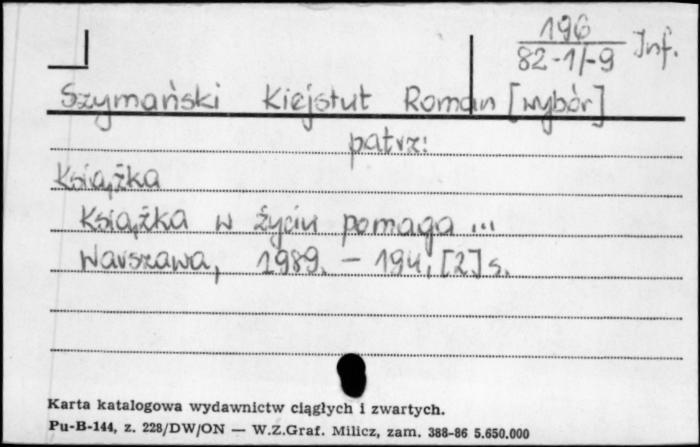 196
82-1/-9 Inf.
Szymański Kiejstut Roman [wybór]
patrz:
Książka
Książka w życiu pomaga ...
Warszawa, 1989. - 194, [2] s.
Karta katalogowa wydawnictw ciągłych i zwartych.
Pu-B-144, z. 228/DW/ON — W.Z.Graf. Milicz, zam. 388-86 5.650.000